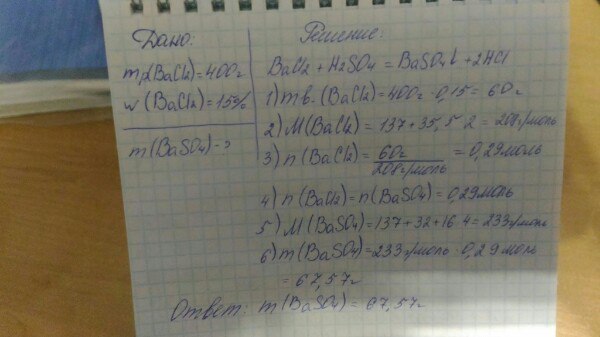 Дано:
mр(BaCl2)=400г
w(BaCl2)=15%
m(BaSO4)-?
Решение:
BaCl2 + H2SO4 = BaSO4↓ + 2HCl
1) mв. (BaCl2) = 400г · 0,15 = 60г
2) M(BaCl2) = 137 + 35,5 · 2 = 208г/моль
3) n(BaCl2) = 60г / 208г/моль = 0,29моль
4) n(BaCl2) = n(BaSO4) = 0,29моль
5) M(BaSO4) = 137 + 32 + 16 · 4 = 233г/моль
6) m(BaSO4) = 233г/моль · 0,29моль
= 67,57г
Ответ: m(BaSO4) = 67,57г